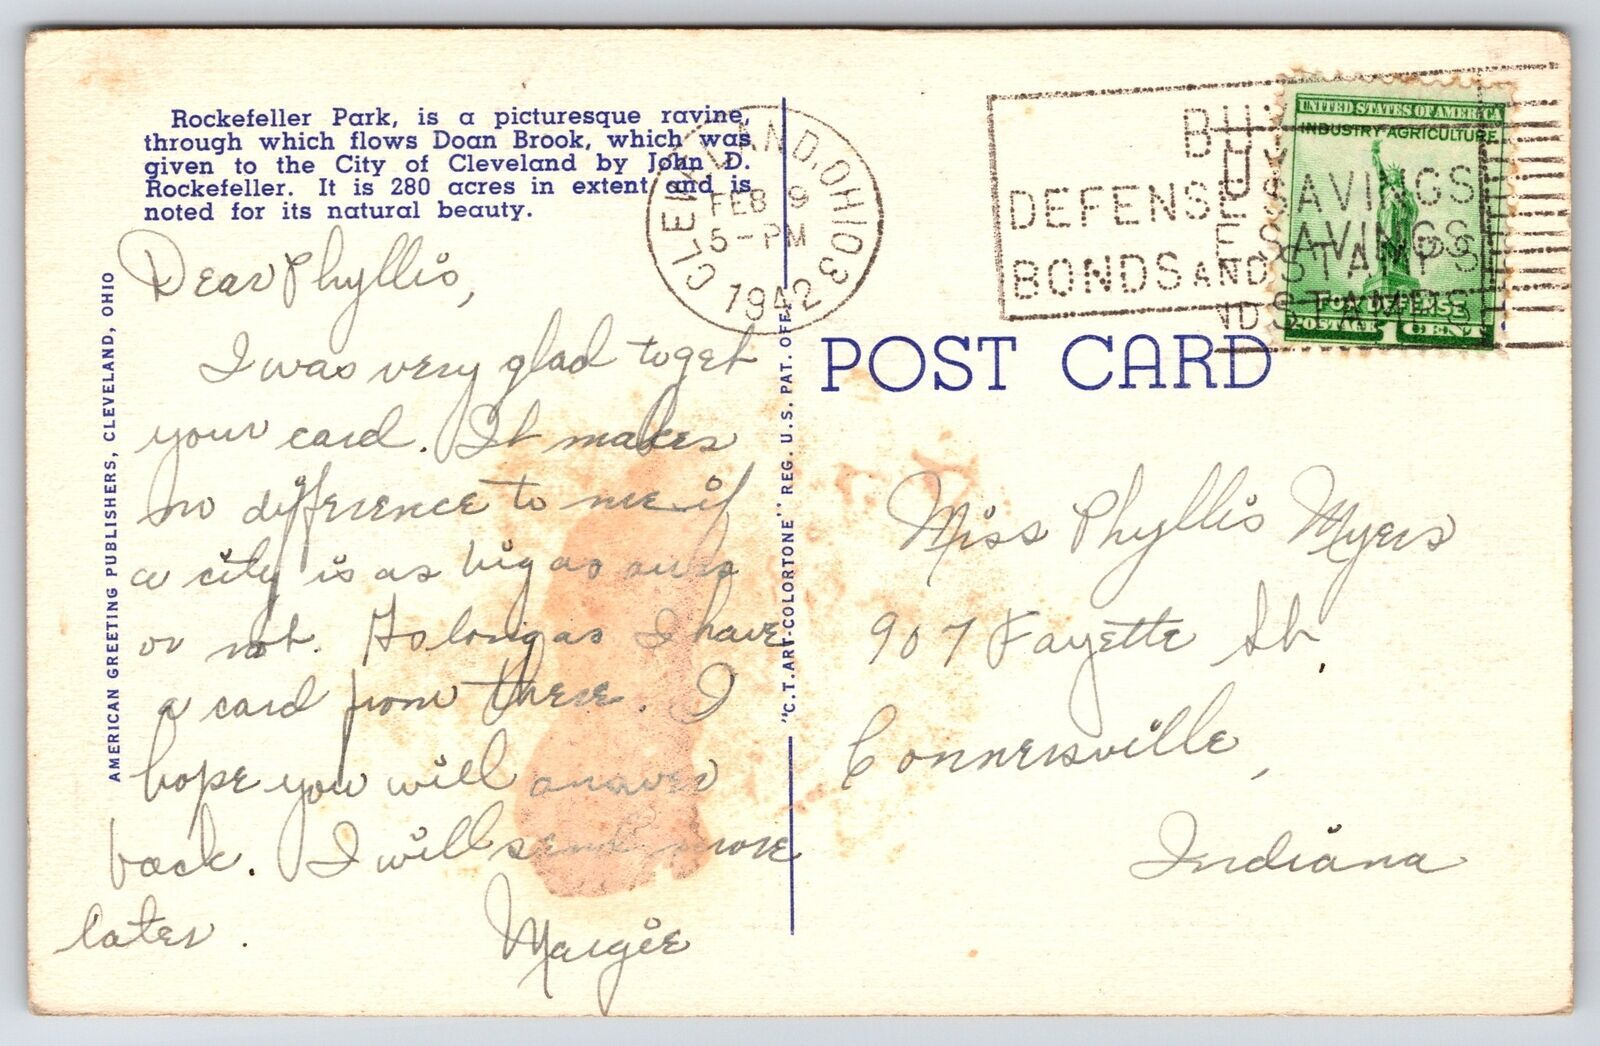 Rockefeller Park, is a picturesque ravine,
through which flows Doan Brook, which was
given to the City of Cleveland by John D.
Rockefeller. It is 280 acres in extent and is
noted for its natural beauty.
Dear Phyllis,
I was very glad to get
your card. It makes
no difference to me if
a city is as big as ours
or not. As long as I have
a card from there. I
hope you will answer
back. I will send more
later.
Margie
AMERICAN GREETING PUBLISHERS, CLEVELAND, OHIO
"C.T. ART-COLORTONE" REG. U.S. PAT. OFF.
CLEVELAND, OHIO 3
FEB 9
5-PM
1942
BUY
DEFENSE SAVINGS
BONDS AND STAMPS
UNITED STATES OF AMERICA
INDUSTRY AGRICULTURE
FOR DEFENSE
POSTAGE 1 CENT
POST CARD
Miss Phyllis Myers
907 Fayette St.
Connersville,
Indiana